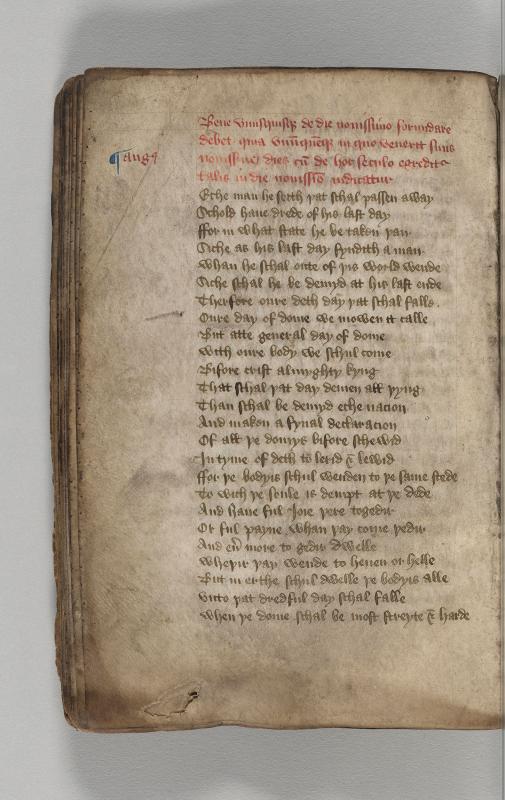 Bene vnusquisqꝫ de die nouissimo formidare
debet quia vnūquēqꝫ in quo inuenerit suus
¶ Augꝰ
nouissimꝰ dies cū de hoc seculo egreditᷣ
talis in die nouissīo iudicatur
Eche man he seith þat schal passen away
Schold haue drede of his last day
ffor in what state he be taken þan
Siche as his last day fyndith a man
Whan he schal oute of þis world wende
Siche schal he be demyd at his last ende
Therfore oure deth day þat schal falle
Oure day of dome we mowen it calle
But atte general day of dome
With oure body we schul come
Bifore crist almyghty kyng
That schal þat day demen all þyng
Than schal be demyd eche nacion
And maken a fynal declaracion
Of all þe domys bifore schewid
In tyme of deth to lerid & lewid
ffor þe bodyis schul wenden to þe same stede
To wich þe soule is dempt at þe dede
And haue ful Joie þere togedir
Or ful payne whan þay come þedir
And eu̅ more to gedir dwelle
Wheþir þay wende to heuen or helle
But in erthe schul dwelle þe bodyis alle
Vnto þat dredful day schal falle
When þe dome schal be most streyte & harde